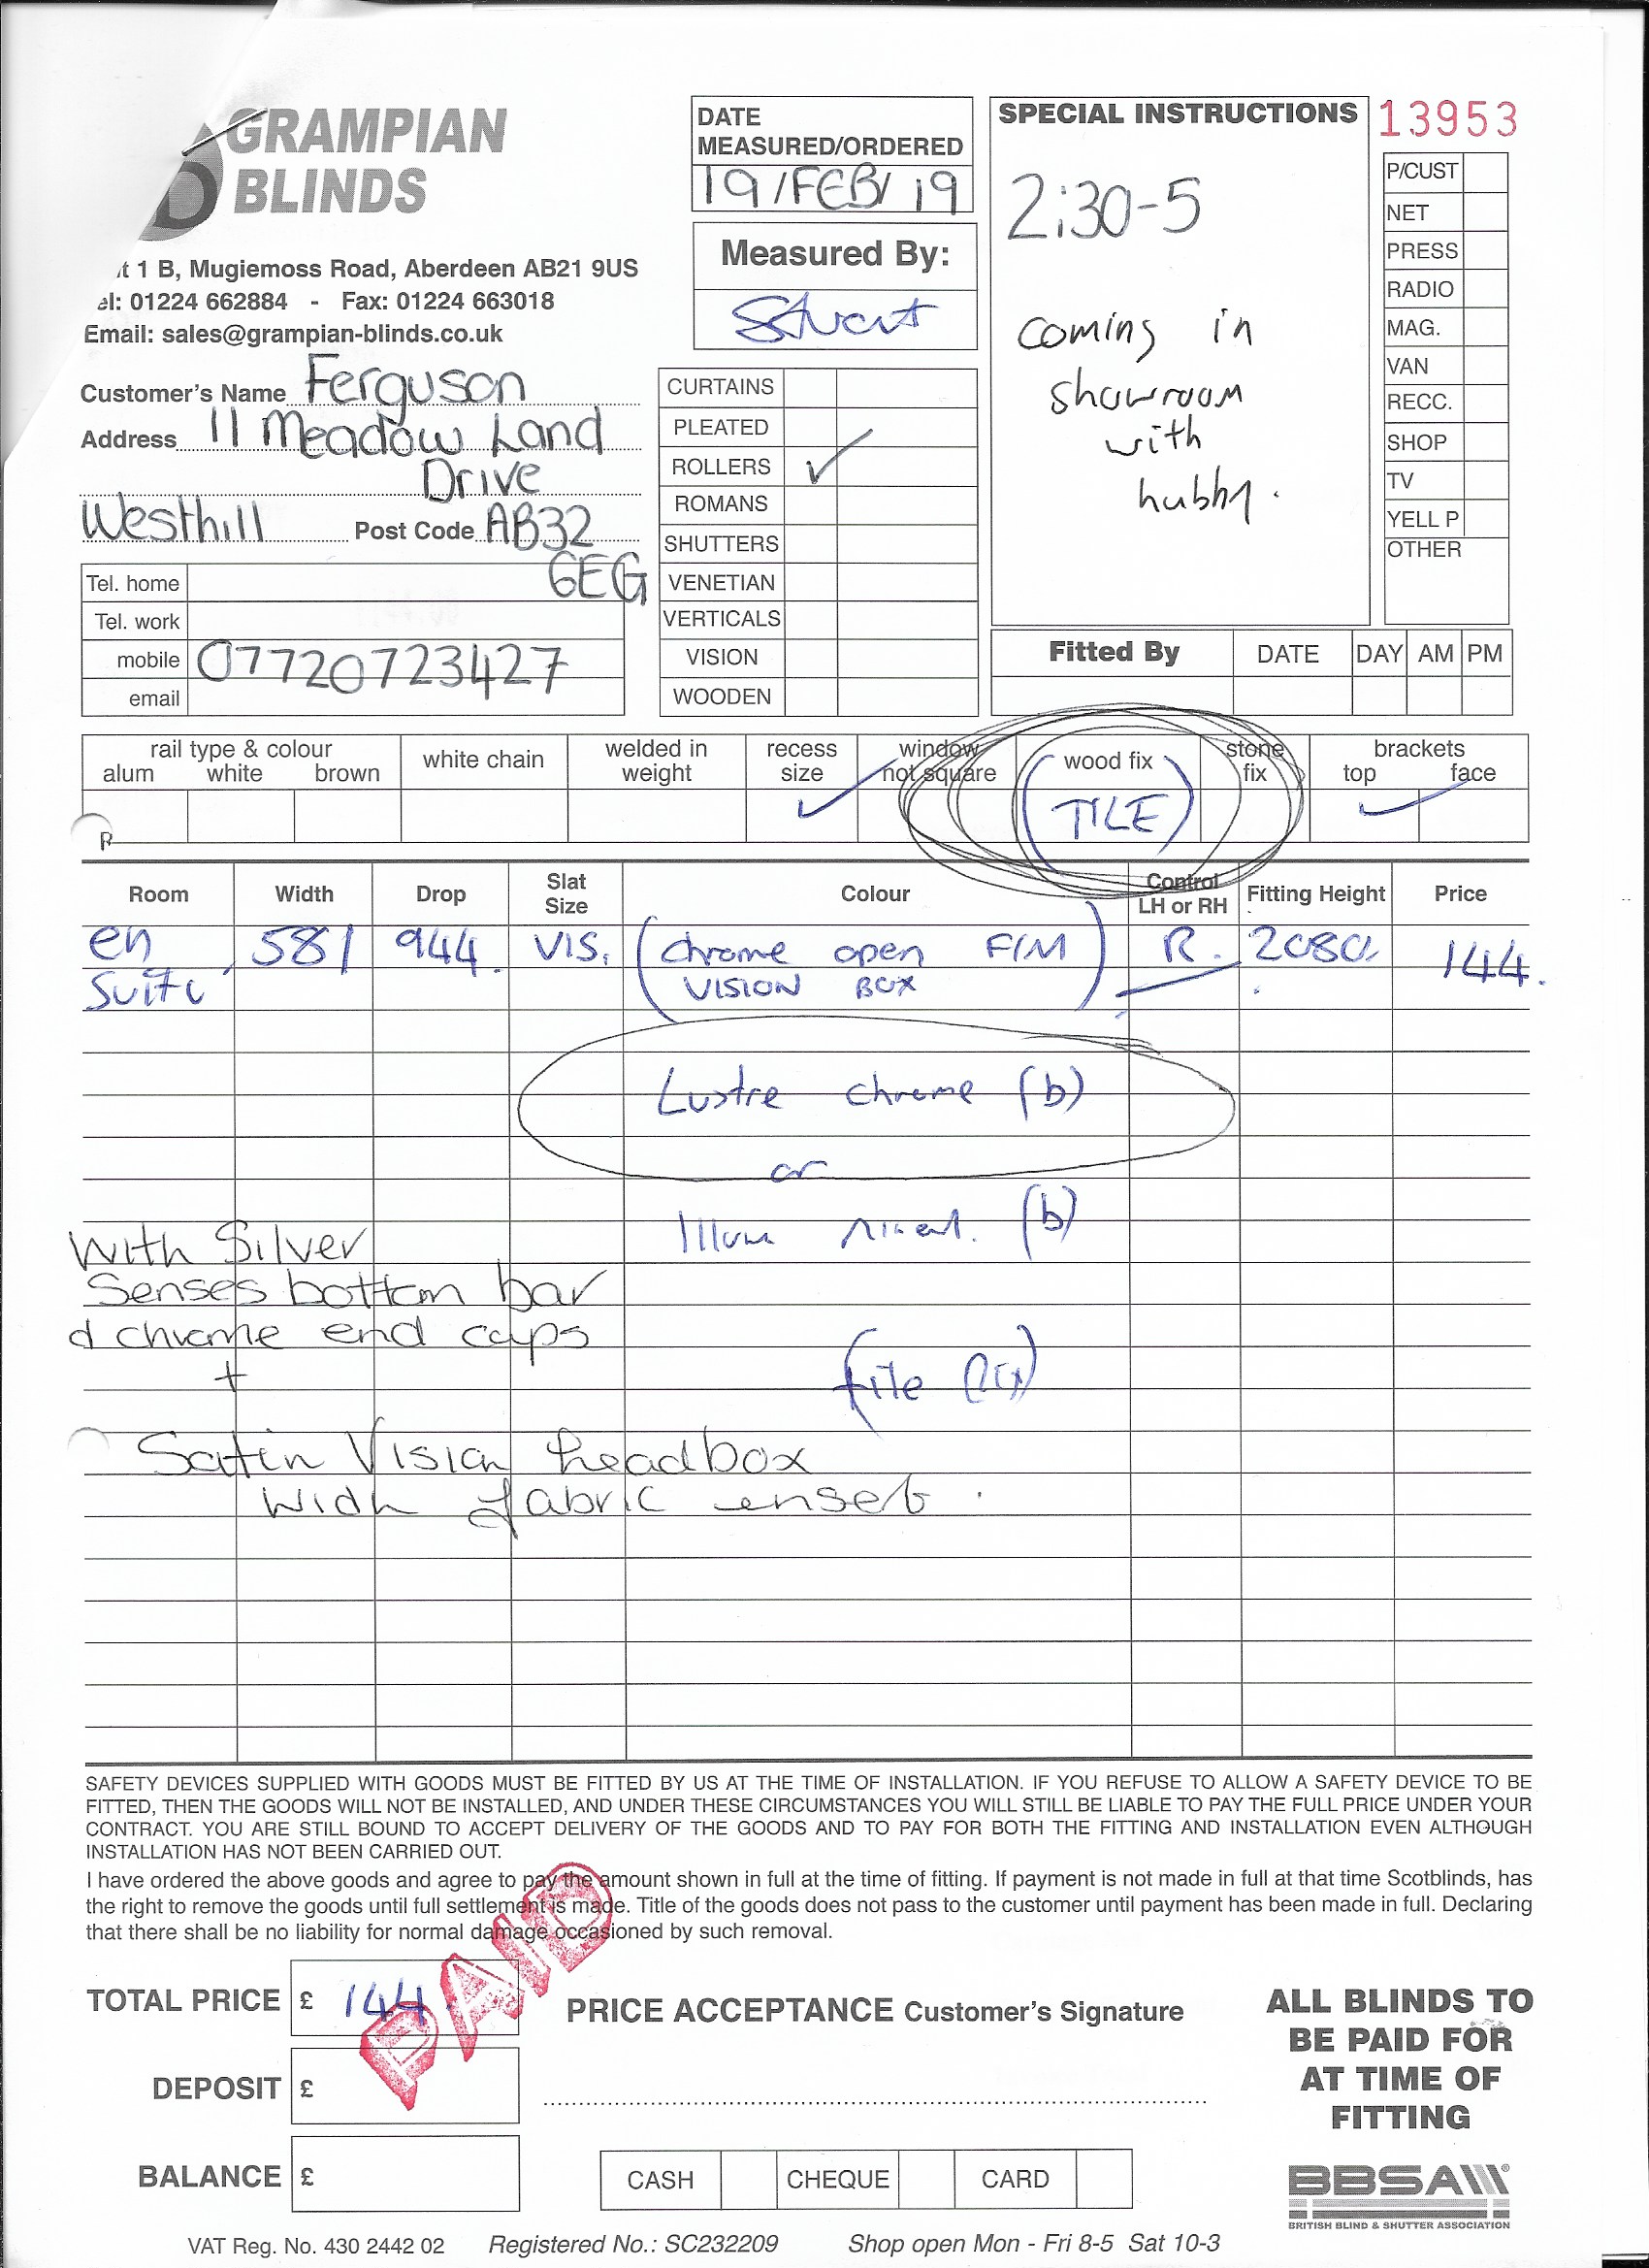 GRAMPIAN
BLINDS
1 B, Mugiemoss Road, Aberdeen AB21 9US
el: 01224 662884 - Fax: 01224 663018
Email: sales@grampian-blinds.co.uk
DATE
MEASURED/ORDERED
19/FEB/19
Measured By:
Stuart
SPECIAL INSTRUCTIONS
2:30-5
coming in
showroom
with
hubby.
13953
P/CUST
NET
PRESS
RADIO
MAG.
VAN
RECC.
SHOP
TV
YELL P
OTHER
Customer's Name Ferguson
Address 11 Meadow Land
Drive
Westhill Post Code AB32
6EG
Tel. home
Tel. work
mobile 07720723427
email
CURTAINS
PLEATED
ROLLERS ✓
ROMANS
SHUTTERS
VENETIAN
VERTICALS
VISION
WOODEN
Fitted By DATE DAY AM PM
rail type & colour
alum white brown
white chain
welded in
weight
recess
size
✓
window
not square
wood fix
(TILE)
stone
fix
brackets
top face
✓
Room Width Drop Slat Size Colour Control LH or RH Fitting Height Price
en 581 944. VIS. (chrome open F/M R. 2080. 144.
suite VISION BOX)
Lustre chrome (b)
or
Illum (b)
With Silver
Senses bottom bar
chrome end caps
+
Satin Vision headbox
with fabric insert.
SAFETY DEVICES SUPPLIED WITH GOODS MUST BE FITTED BY US AT THE TIME OF INSTALLATION. IF YOU REFUSE TO ALLOW A SAFETY DEVICE TO BE
FITTED, THEN THE GOODS WILL NOT BE INSTALLED, AND UNDER THESE CIRCUMSTANCES YOU WILL STILL BE LIABLE TO PAY THE FULL PRICE UNDER YOUR
CONTRACT. YOU ARE STILL BOUND TO ACCEPT DELIVERY OF THE GOODS AND TO PAY FOR BOTH THE FITTING AND INSTALLATION EVEN ALTHOUGH
INSTALLATION HAS NOT BEEN CARRIED OUT.
I have ordered the above goods and agree to pay the amount shown in full at the time of fitting. If payment is not made in full at that time Scotblinds, has
the right to remove the goods until full settlement is made. Title of the goods does not pass to the customer until payment has been made in full. Declaring
that there shall be no liability for normal damage occasioned by such removal.
PAID
TOTAL PRICE £ 144.
DEPOSIT £
BALANCE £
PRICE ACCEPTANCE Customer's Signature
CASH CHEQUE CARD
ALL BLINDS TO
BE PAID FOR
AT TIME OF
FITTING
BBSA
BRITISH BLIND & SHUTTER ASSOCIATION
VAT Reg. No. 430 2442 02 Registered No.: SC232209 Shop open Mon - Fri 8-5 Sat 10-3